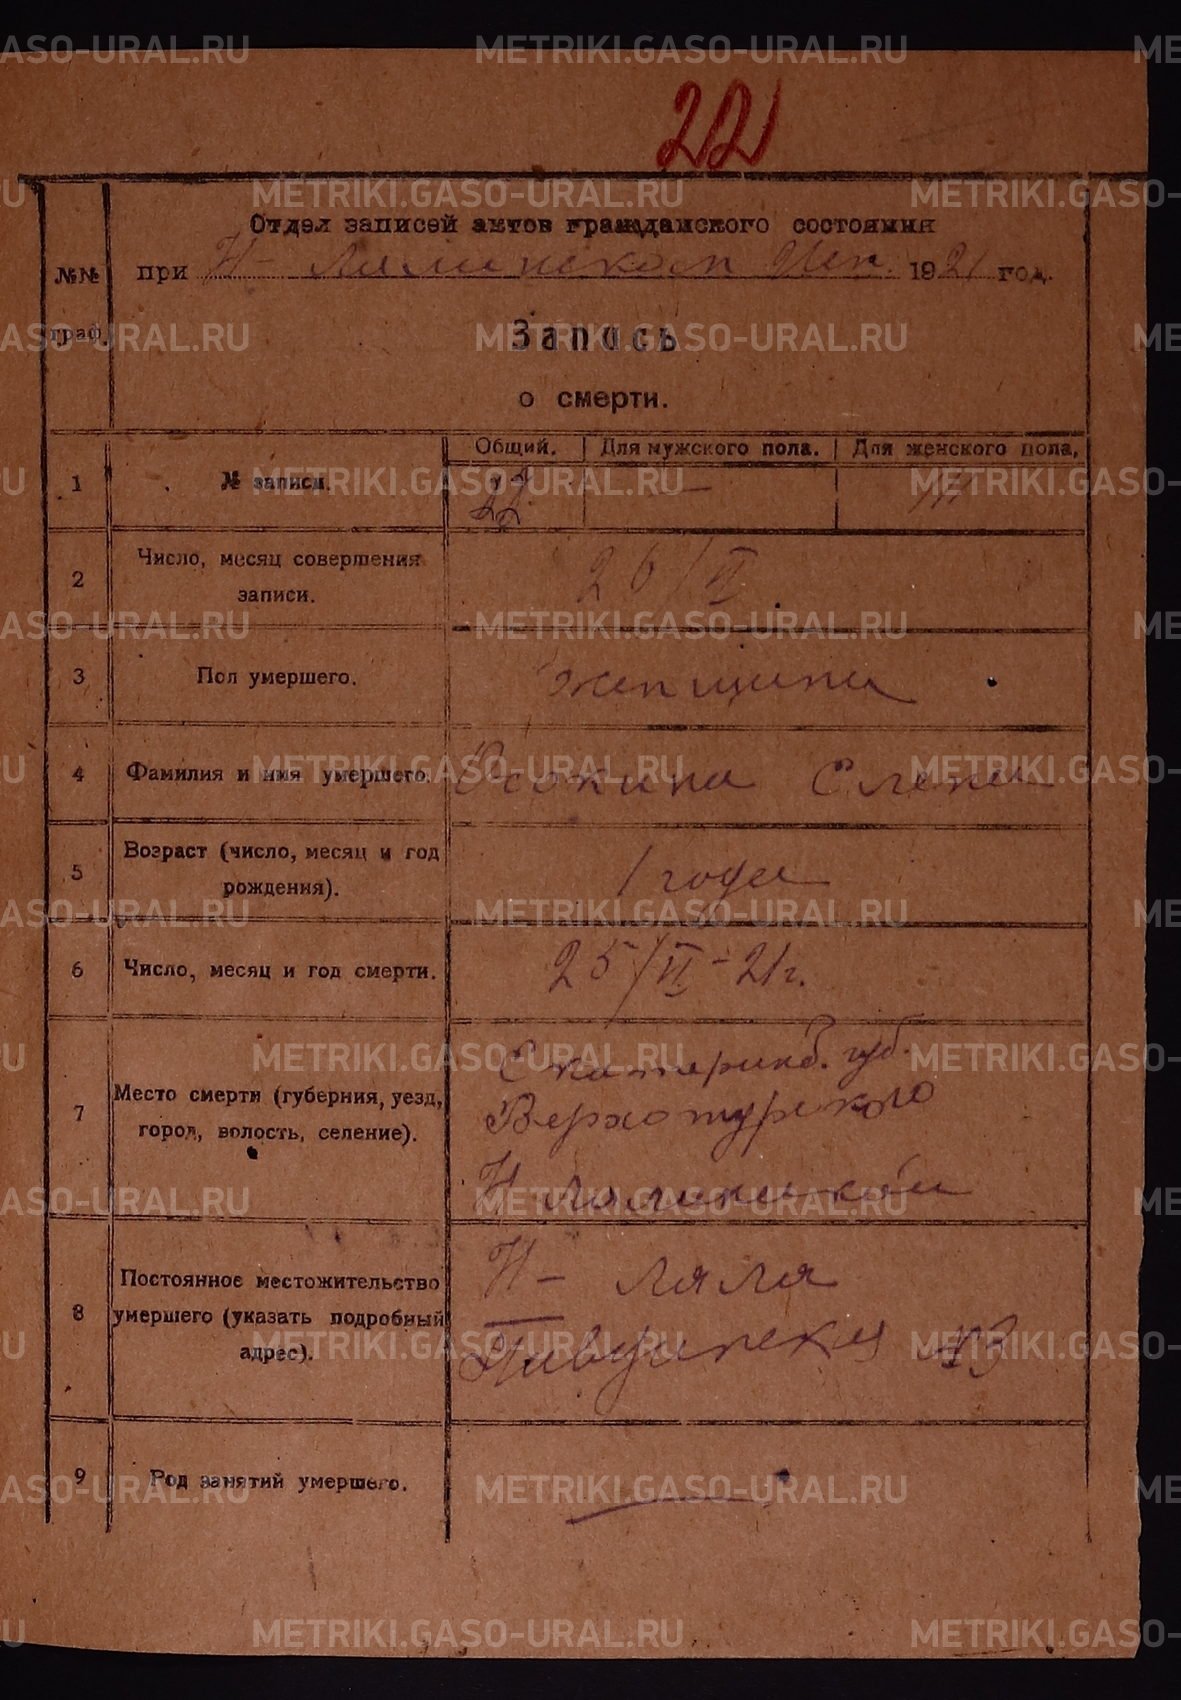 22
Отдел записей актов гражданского состояния
№№ граф.
при Н-Лялинском Исп. 1921 год.
Запись
о смерти.
Общий. Для мужского пола. Для женского пола.
1 № записи. 22 —
2 Число, месяц совершения записи. 26/VI
3 Пол умершего. женщина
4 Фамилия и имя умершего. Осокина Елена
5 Возраст (число, месяц и год рождения). 1 года
6 Число, месяц и год смерти. 25/VI-21г.
7 Место смерти (губерния, уезд, город, волость, селение).
Екатеринб. губ.
Верхотурского
Н Лялинской
8 Постоянное местожительство умершего (указать подробный адрес).
Н-Ляля
Павдинская №3
9 Род занятий умершего. —
METRIKI.GASO-URAL.RU